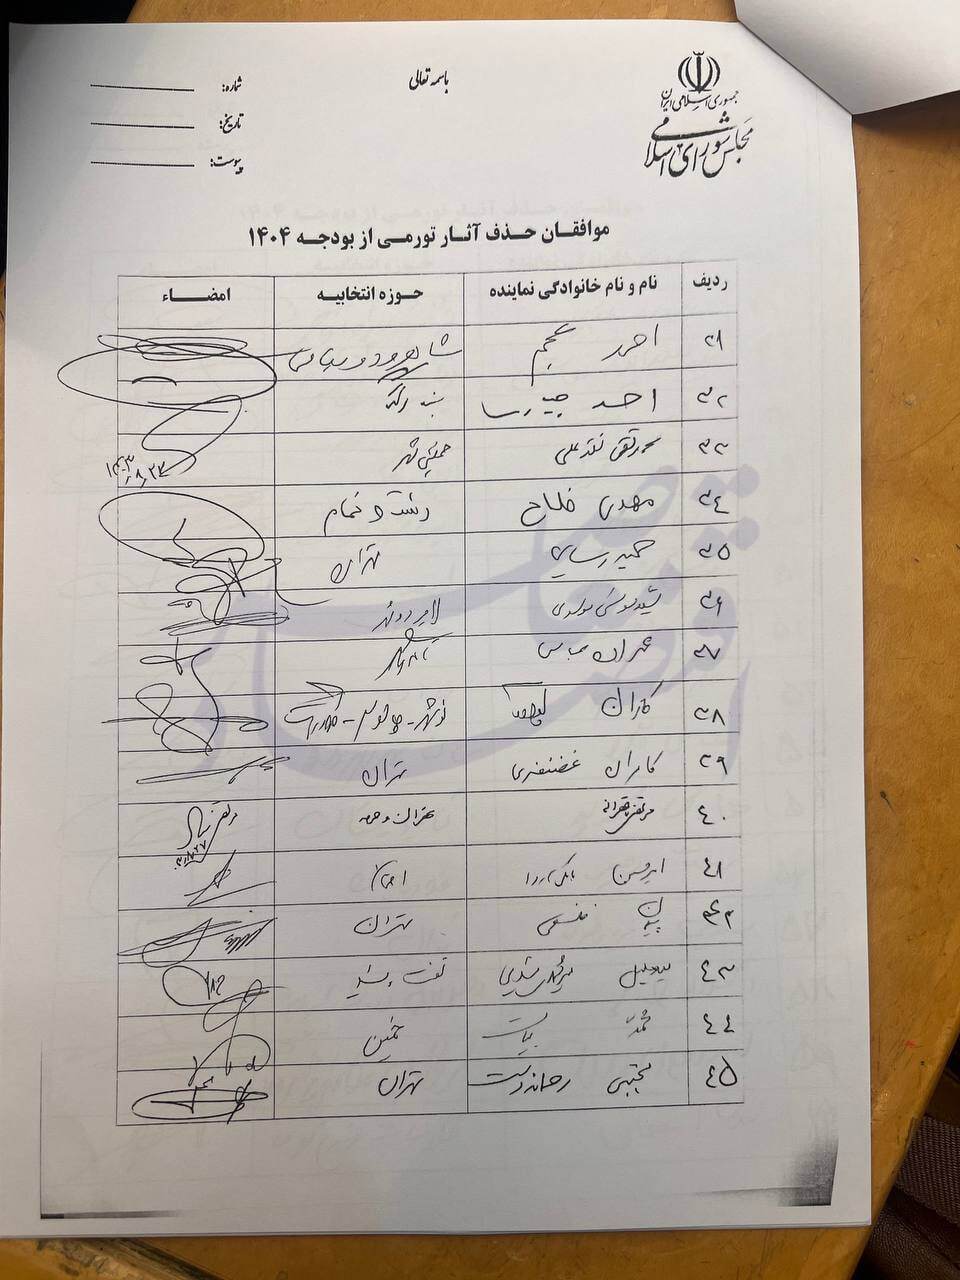 باسمه تعالی
جمهوری اسلامی ایران
مجلس شورای اسلامی
شماره:
تاریخ:
پیوست:
موافقان حذف آثار تورمی از بودجه ۱۴۰۴
ردیف نام و نام خانوادگی نماینده حوزه انتخابیه امضاء
۳۱ احمد عجم شاهرود و میامی
۳۲ احمد جباری بندر لنگه
۳۳ محمدتقی نقدعلی خمینی شهر ۱۴۰۳/۸/۲۳
۳۴ مهدی فلاح رشت و خمام
۳۵ حمید رسایی تهران
۳۶ سیدموسی موسوی لامرد و مهر
۳۷ عمران عباسی
۳۸ کامران نوشهر - چالوس -
۳۹ کامران غضنفری تهران
۴۰ مرتضی آقاتهرانی تهران و حومه
۴۱
۴۲ تهران
۴۳ سیدجلیل میرمحمدی میبدی تفت و میبد
۴۴ محمد بیات خمین
۴۵ مجتبی رحماندوست تهران